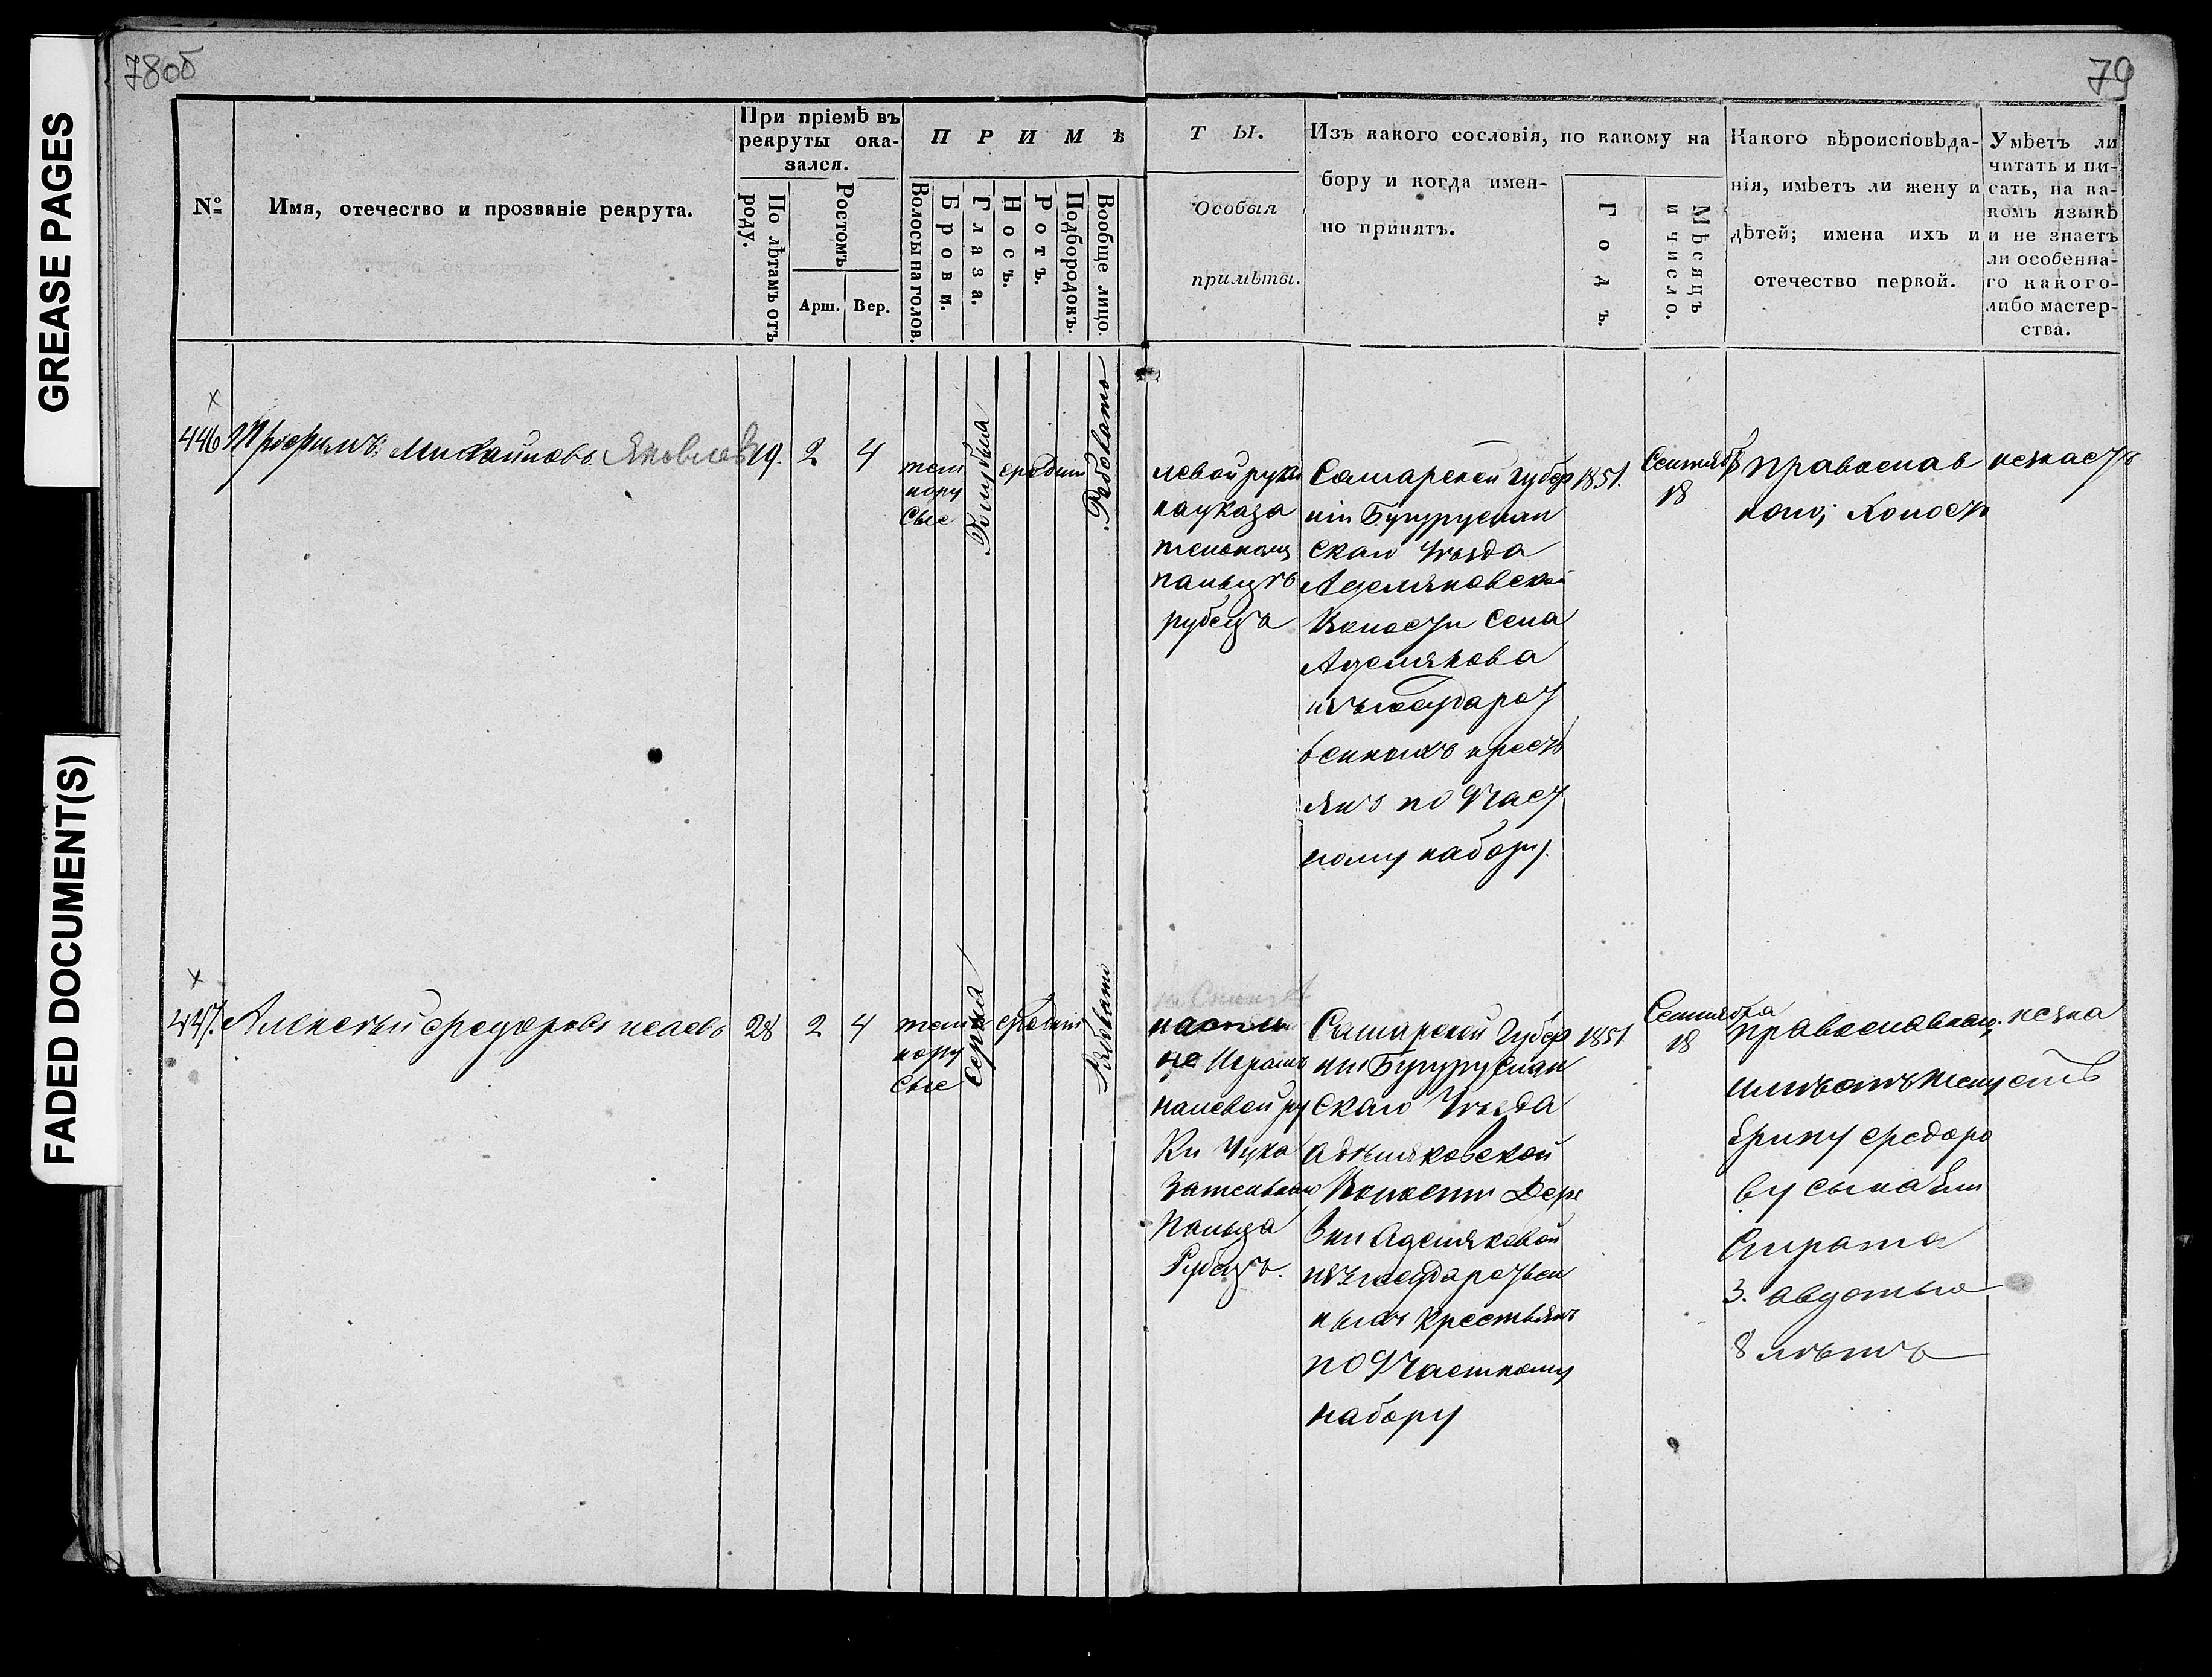 GREASE PAGES
FADED DOCUMENT(S)
78об
79
№
Имя, отечество и прозваніе рекрута.
При пріемѣ въ
рекруты ока-
зался.
По лѣтамъ отъ
роду.
Ростомъ
Арш.
Вер.
ПРИМѢ
Волосы на голов.
Брови.
Глаза.
Носъ.
Ротъ.
Подбородокъ.
Вообще лицо.
ТЫ.
Особыя
примѣты.
Изъ какого сословія, по какому на
бору и когда имен-
но принятъ.
Годъ.
Мѣсяцъ
и число.
Какого вѣроисповѣда-
нія, имѣетъ ли жену и
дѣтей; имена ихъ и
отечество первой.
Умѣетъ ли
читать и пи-
сать, на ка-
комъ языкѣ
и не знаетъ
ли особенна-
го какого-
либо мастер-
ства.
446
Трофимъ Михайловъ Яковлев
19.
2
4
тем
нору
сые
Голубыя
средни
Рябовато
левой руки
науказа
тельномъ
пальцѣ
рубецъ
Самарской Губер
ніи Бугурусман
скаго Уѣзда
Аделяковской
Волости Села
Аделякова
изъ государст
венныхъ кресть
янъ по 9 част
ному набору.
1851.
Сентября
18
православ
наго; Холостъ
незнаетъ
447.
Алексѣй Федоровъ Исаевъ
28
2
4
тем
нору
сые
Серыя
средни
на Спинѣ
Шрамъ
налевой ру
ки Указа
Пальца
Рубецъ.
Самарской Губер
ніи Бугурусман
скаго Уѣзда
Аделяковской
Волости Дере
вни Аделяковой
изъ государствен
ныхъ Крестьянъ
по 9 Частному
набору
1851
Сентября
18
православнаго.
имѣетъ жену
Ирину Федоро
ву сына Епи
3. Авдотью
8 лѣтъ
незна
етъ